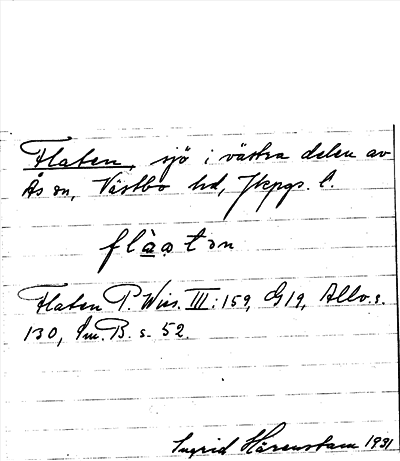 Flaten, sjö i västra delen av
Ås sn, Västbo hd, Jkpgs. l.
flàatən
Flaten P. Wies. III: 159, G19, Allv. s.
130, Sm. B. s. 52.
Ingrid Hårenstam 1931